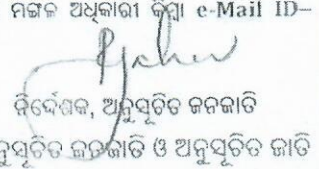 ମଙ୍ଗଳ ଅଧିକାରୀ କିମ୍ବା e-Mail ID–
ନିର୍ଦ୍ଦେଶକ, ଅନୁସୂଚିତ ଜନଜାତି
ନୁସୂଚିତ ଜନଜାତି ଓ ଅନୁସୂଚିତ ଜାତି